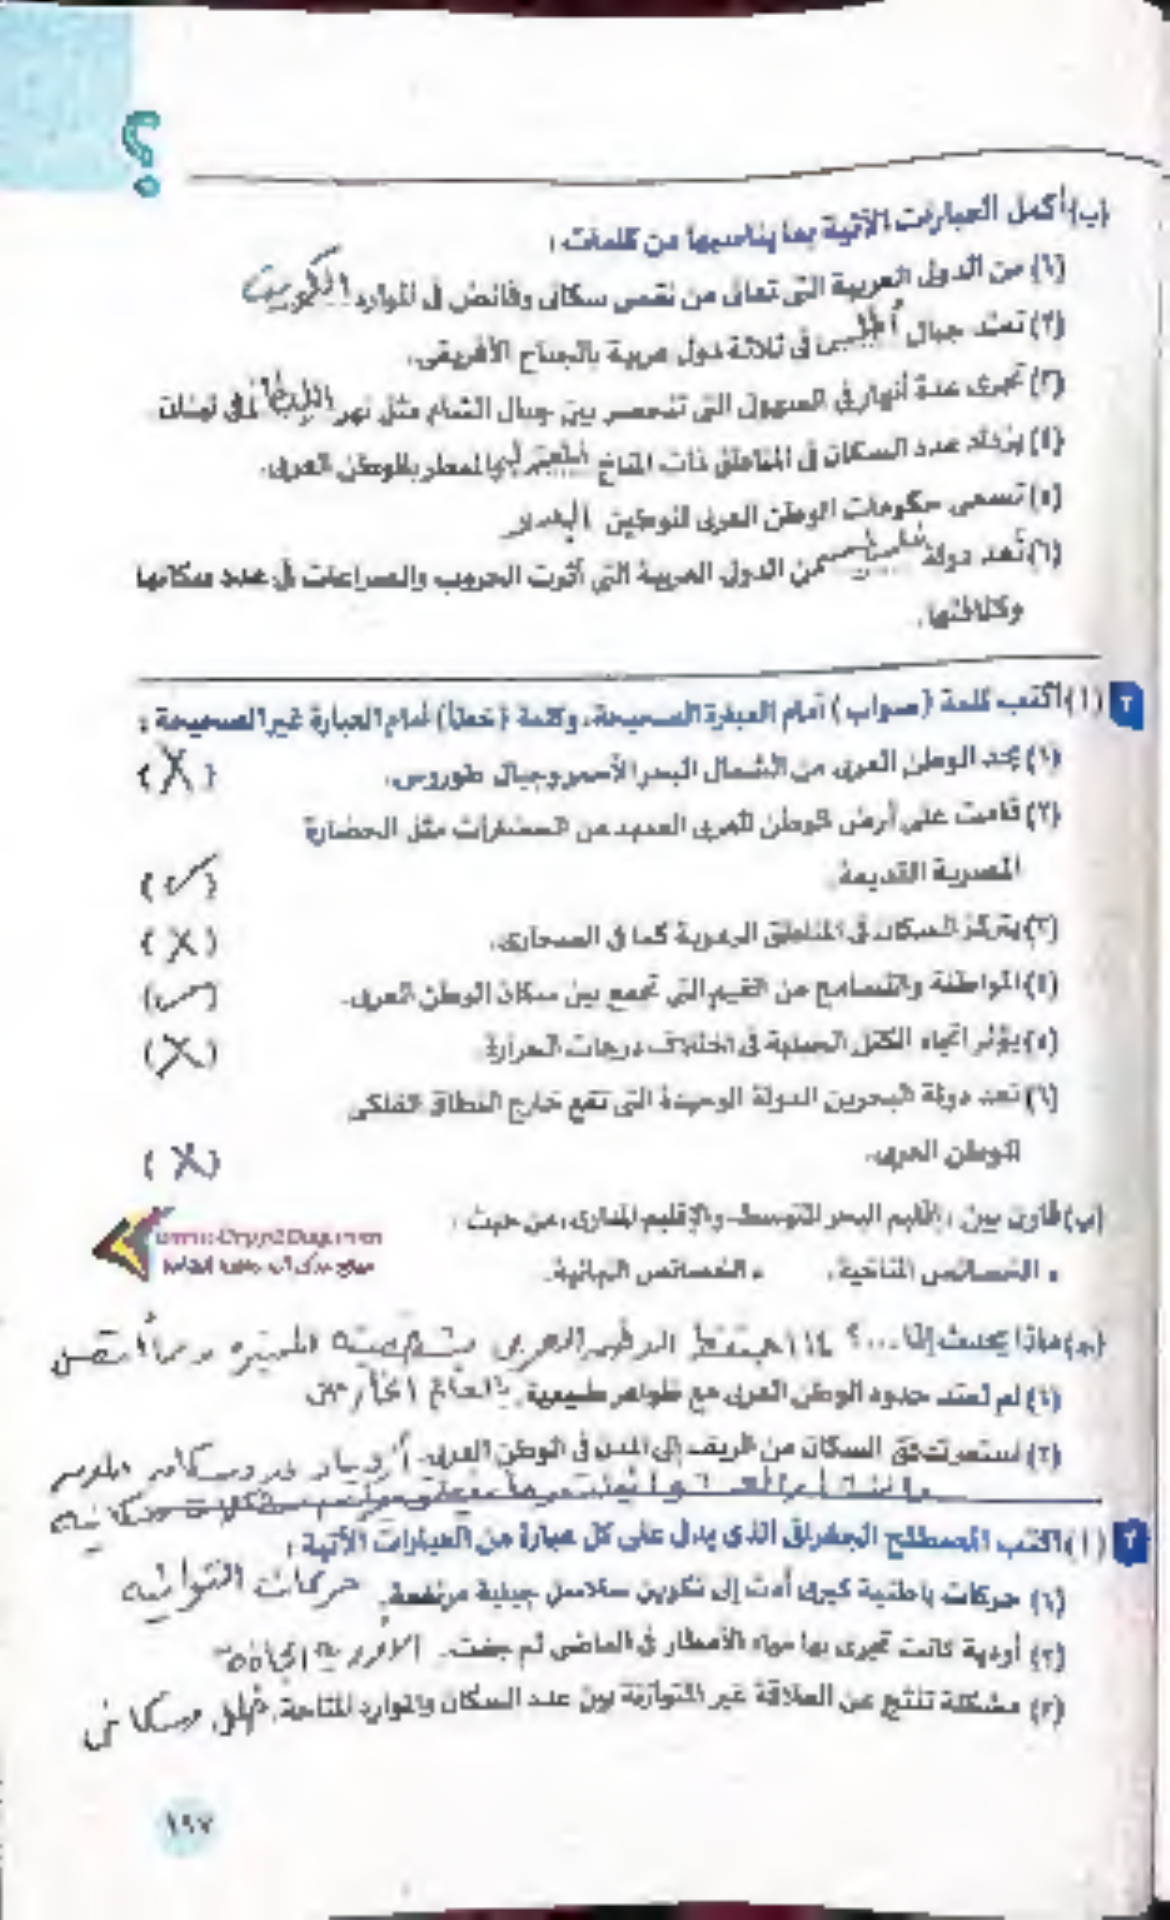 ؟
(ب) أكمل العبارات الآتية بما يناسبها من كلمات :
(١) من الدول العربية التى تعانى من نقص سكانى وفائض فى الموارد الكويت
(٢) تمتد جبال أطلس فى ثلاثة دول عربية بالجناح الأفريقى.
(٣) تجرى عدة أنهار فى السهول التى تنحصر بين جبال الشام مثل نهر الليطانى فى لبنان
(٤) يزداد عدد السكان فى المناطق ذات المناخ المعتدل والمطر بالوطن العربى.
(٥) تسعى حكومات الوطن العربى لتوطين البدو
(٦) تعد دولة من الدول العربية التى أثرت الحروب والصراعات فى عدد سكانها
وكثافتها.
٢ (أ) اكتب كلمة (صواب) أمام العبارة الصحيحة، وكلمة (خطأ) أمام العبارة غير الصحيحة :
(١) يحد الوطن العربى من الشمال البحر الأحمر وجبال طوروس. (X)
(٢) قامت على أرض الوطن العربى العديد من الحضارات مثل الحضارة
المصرية القديمة. (✓)
(٣) يتركز السكان فى المناطق الرعوية كما فى الصحارى. (X)
(٤) المواطنة والتسامح من القيم التى تجمع بين سكان الوطن العربى. (✓)
(٥) يؤثر اتجاه الكتل الجبلية فى اختلاف درجات الحرارة. (X)
(٦) تعد دولة البحرين الدولة الوحيدة التى تقع خارج النطاق الفلكى
للوطن العربى. (X)
(ب) قارن بين : إقليم البحر المتوسط، والإقليم المدارى، من حيث :
• الخصائص المناخية. • الخصائص النباتية.
(جـ) ماذا يحدث إذا ...؟
(١) لم تمتد حدود الوطن العربى مع ظواهر طبيعية. بالعالم الخارجى
(٢) استمر تدفق السكان من الريف إلى المدن فى الوطن العربى.
٣ (أ) اكتب المصطلح الجغرافى الذى يدل على كل عبارة من العبارات الآتية :
(١) حركات باطنية كبرى أدت إلى تكوين سلاسل جبلية مرتفعة. حركات التوائية
(٢) أودية كانت تجرى بها مياه الأمطار فى الماضى ثم جفت. الأودية الجافة
(٣) مشكلة تنتج عن العلاقة غير المتوازنة بين عدد السكان والموارد المتاحة.
١٩٧